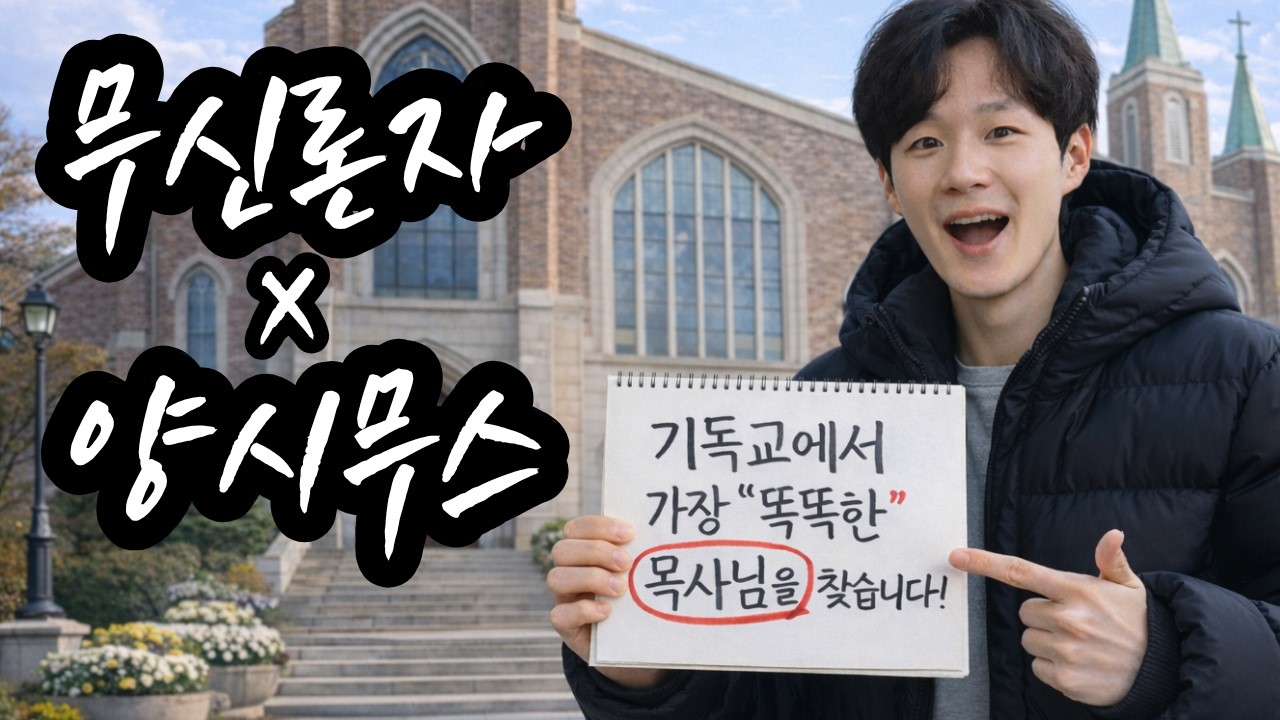 무신론자
x
양시무스
기독교에서
가장 “똑똑한”
목사님을 찾습니다!